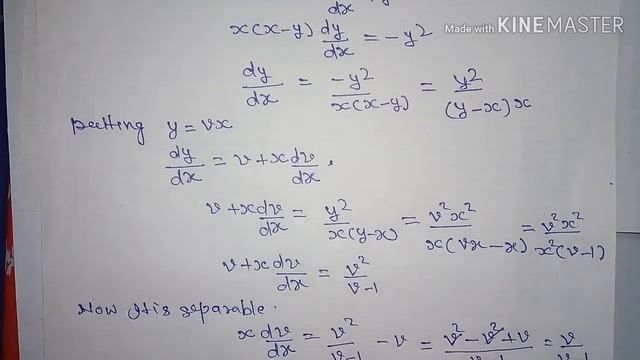 dx
x(x-y) dy/dx = -y²
Made with KINEMASTER
dy/dx = -y²/x(x-y) = y²/(y-x)x
putting y = vx
dy/dx = v + x dv/dx .
v + x dv/dx = y²/x(y-x) = v²x²/x(vx-x) = v²x²/x²(v-1)
v + x dv/dx = v²/v-1
Now it is separable.
x dv/dx = v²/v-1 - v = v²-v²+v/ = v/